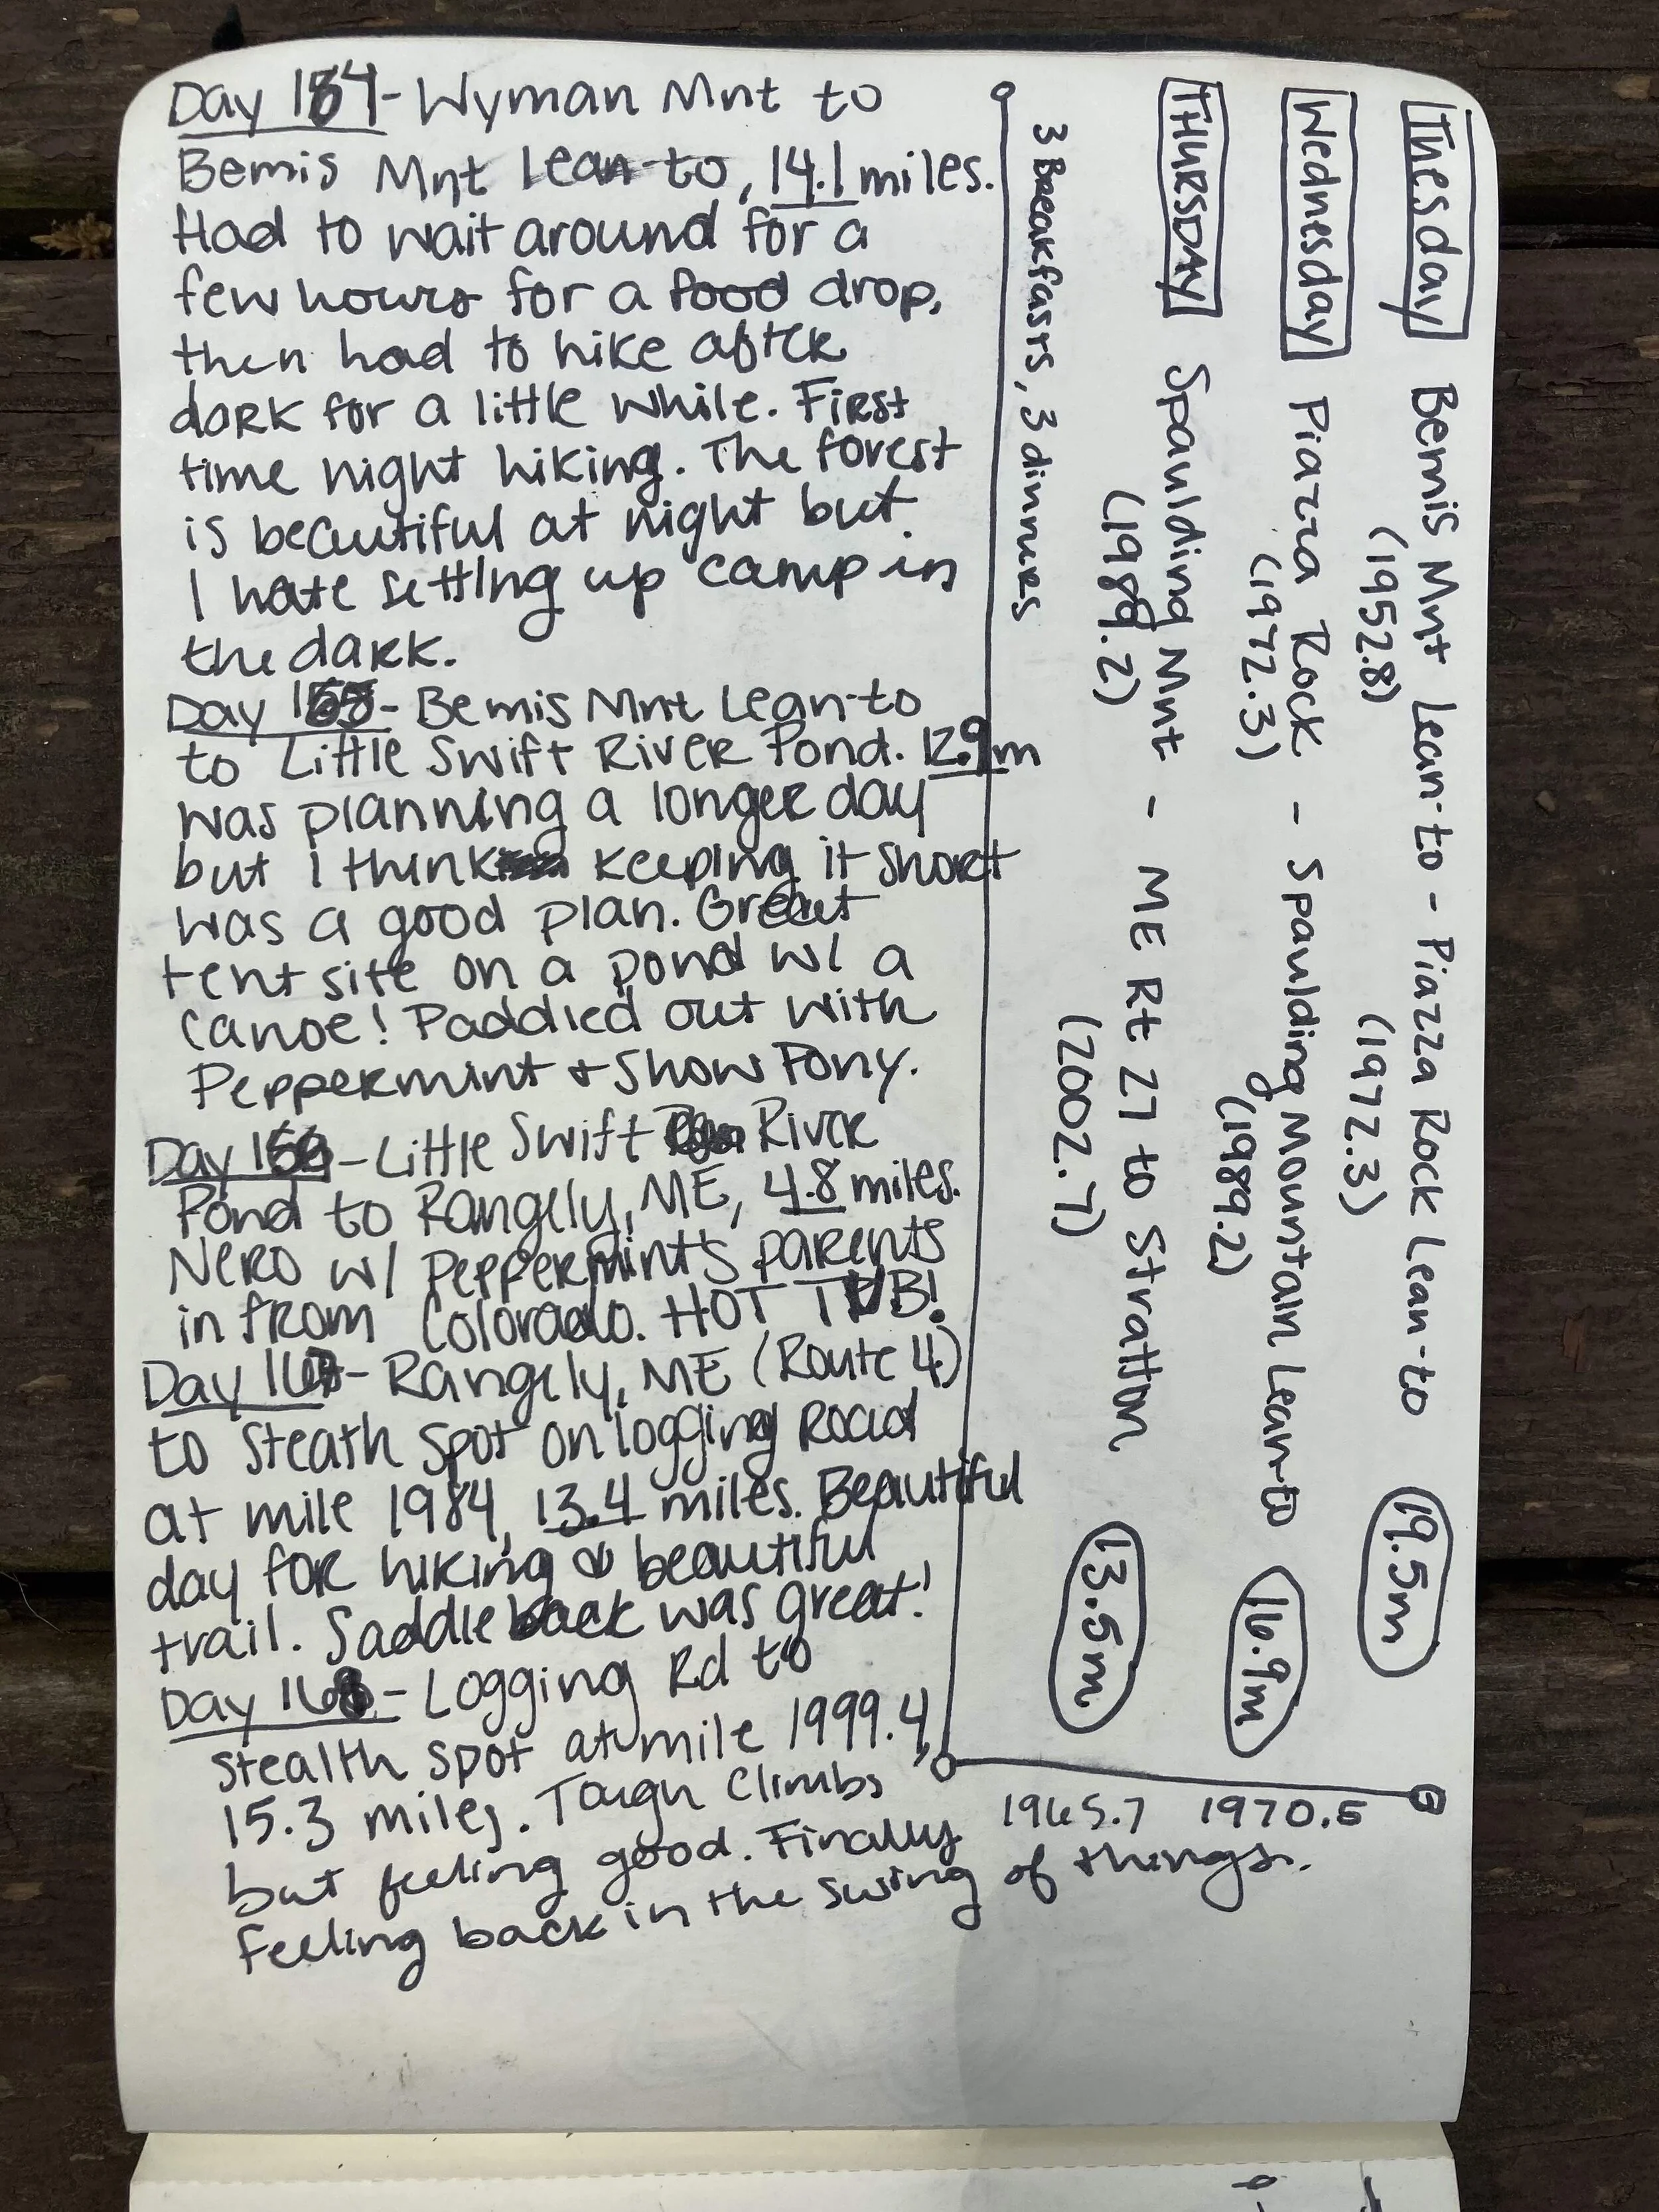 Day 164 - Wyman Mnt to
Bemis Mnt Lean-to, 14.1 miles.
Had to wait around for a
few hours for a food drop,
then had to hike after
dark for a little while. First
time night hiking. The forest
is beautiful at night but
I hate setting up camp in
the dark.
Day 165 - Bemis Mnt Lean-to
to Little Swift River Pond. 12.9m
was planning a longer day
but i think keeping it short
was a good plan. Great
tent site on a pond w/ a
canoe! Paddled out with
Peppermint + Show Pony.
Day 166 - Little Swift River
Pond to Rangely, ME, 4.8 miles.
Nero w/ Peppermint's parents
in from Colorado. HOT TUB!
Day 167 - Rangely, ME (Route 4)
to Steath Spot on logging Road
at mile 1984, 13.4 miles. Beautiful
day for hiking & beautiful
trail. Saddleback was great!
Day 168 - Logging Rd to
stealth spot at mile 1999.4,
15.3 miles. Tough Climbs
but feeling good. Finally
feeling back in the swing of things.
Tuesday Bemis Mnt Lean-to - Piazza Rock Lean-to 19.5m
(1952.8) (1972.3)
Wednesday Piazza Rock - Spaulding Mountain Lean-to 16.9m
(1972.3) (1989.2)
THURSDAY Spaulding Mnt - ME Rt 27 to Stratton 13.5m
(1989.2) (2002.7)
3 Breakfasts, 3 dinners
1965.7 1970.5